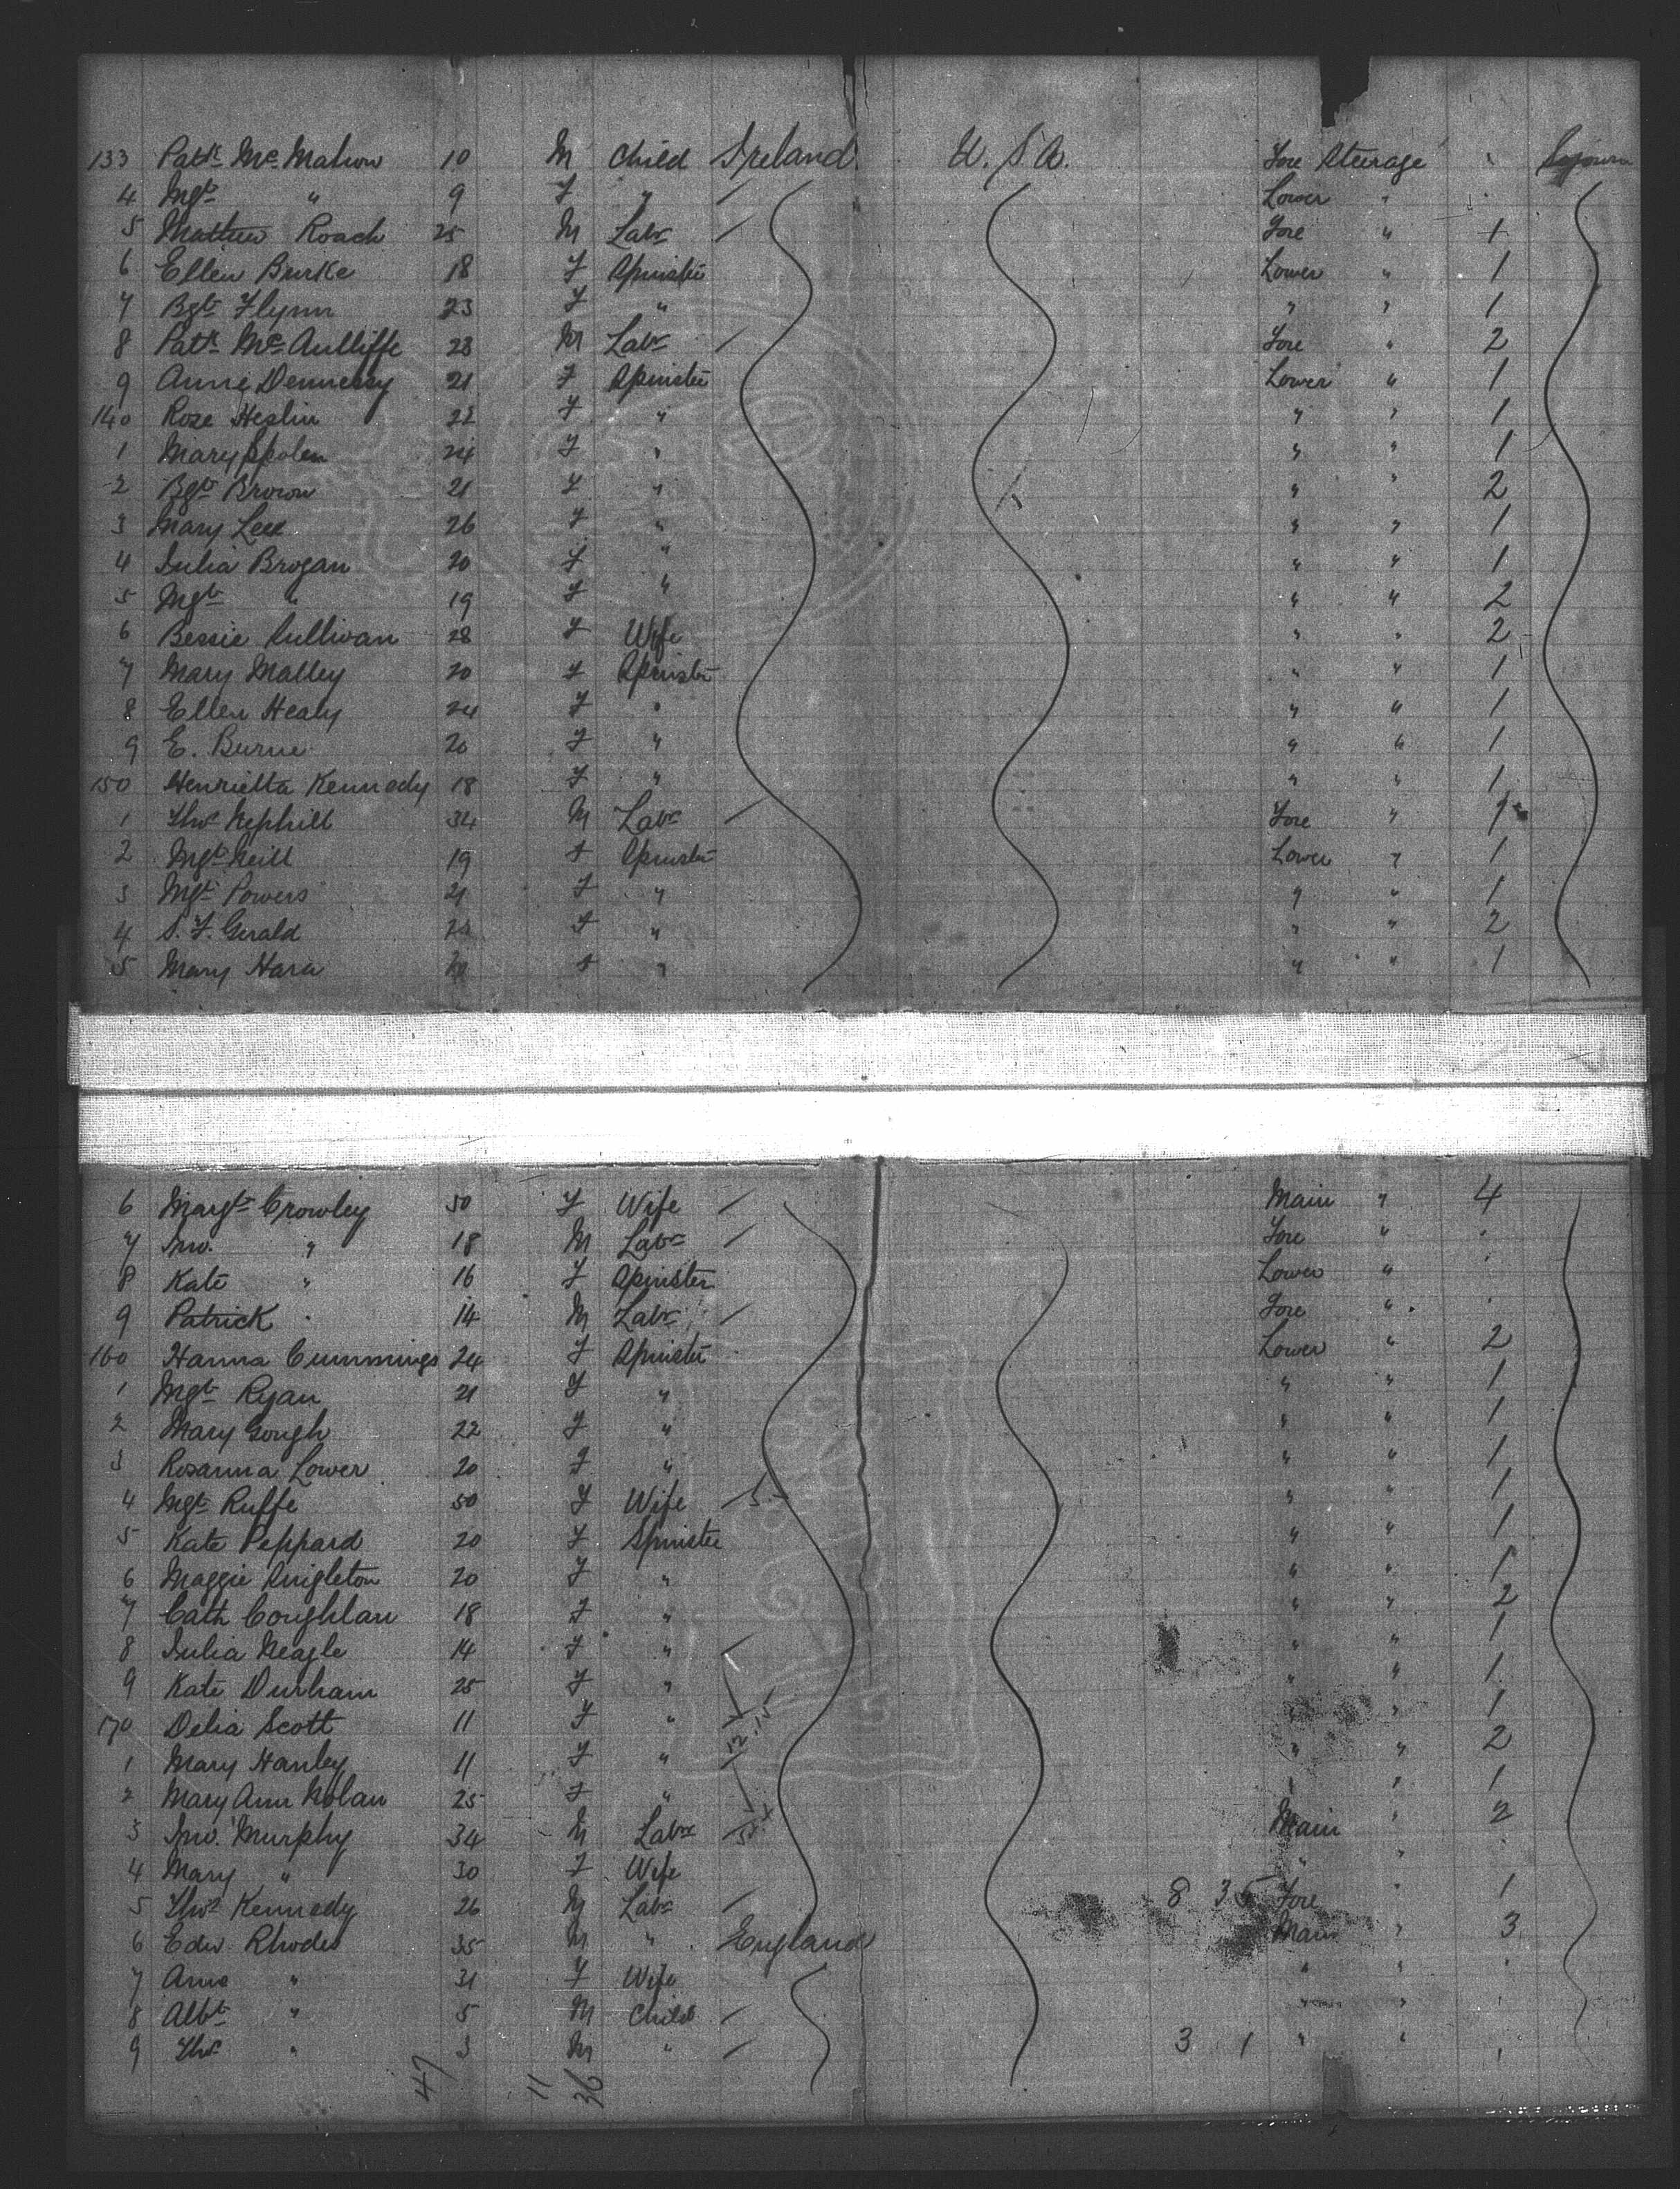 133 Patk Mc Mahon 10 M Child Ireland U.S.A. Fore Steerage
4 Mgt " 9 F " Lower "
5 Mathew Roach 25 M Labr Fore " 1
6 Ellen Burke 18 F Spinster Lower " 1
7 Bgt Flynn 23 F " " " 1
8 Patk Mc Aulliffe 23 M Labr Fore " 2
9 Annie Dennessy 21 F Spinster Lower " 1
140 Rose Heslin 22 F " " " 1
1 Mary 24 F " " " 1
2 Bgt Brown 21 F " " " 2
3 Mary Lee 26 F " " " 1
4 Julia Brogan 20 F " " " 1
5 Mgt " 19 F " " " 2
6 Bessie Sullivan 28 F Wife " " 2
7 Mary Malley 20 F Spinster " " 1
8 Ellen Healy 24 F " " " 1
9 E. Burne 20 F " " " 1
150 Henrietta Kennedy 18 F " " " 1
1 Thos Nephill 34 M Labr Fore " 1
2 Mgt Neill 19 F Spinster Lower " 1
3 Mgt Powers 21 F " " " 1
4 S. F. Gerald F " " " 2
5 Mary Hara F " " " 1
6 Margt Crowley 50 F Wife Main " 4
7 Jno. " 18 M Labr Fore "
8 Kate " 16 F Spinster Lower "
9 Patrick " 14 M Labr Fore "
160 Hanna Cummings 24 F Spinster Lower " 2
1 Mgt Ryan 21 F " " " 1
2 Mary Gough 22 F " " " 1
3 Rosanna Lower 20 F " " " 1
4 Mgt Ruffe 50 F Wife " " 1
5 Kate Peppard 20 F Spinster " " 1
6 Maggie Singleton 20 F " " " 1
7 Cath Coughlan 18 F " " " 2
8 Julia Neagle 14 F " " " 1
9 Kate Durham 25 F " " " 1
170 Delia Scott 11 F " " " 1
1 Mary Hanley 11 F " " " 2
2 Mary Ann Nolan 25 F " " " 1
3 Jno. Murphy 34 M Labr Main " 2
4 Mary " 30 F Wife " "
5 Thos Kennedy 26 M Labr 8 35 Fore " 1
6 Edw. Rhodes 35 M " England Main " 3
7 Ann " 31 F Wife " "
8 Albt " 5 M Child " "
9 Thos " 3 M " 3 1 " "
47 11 36